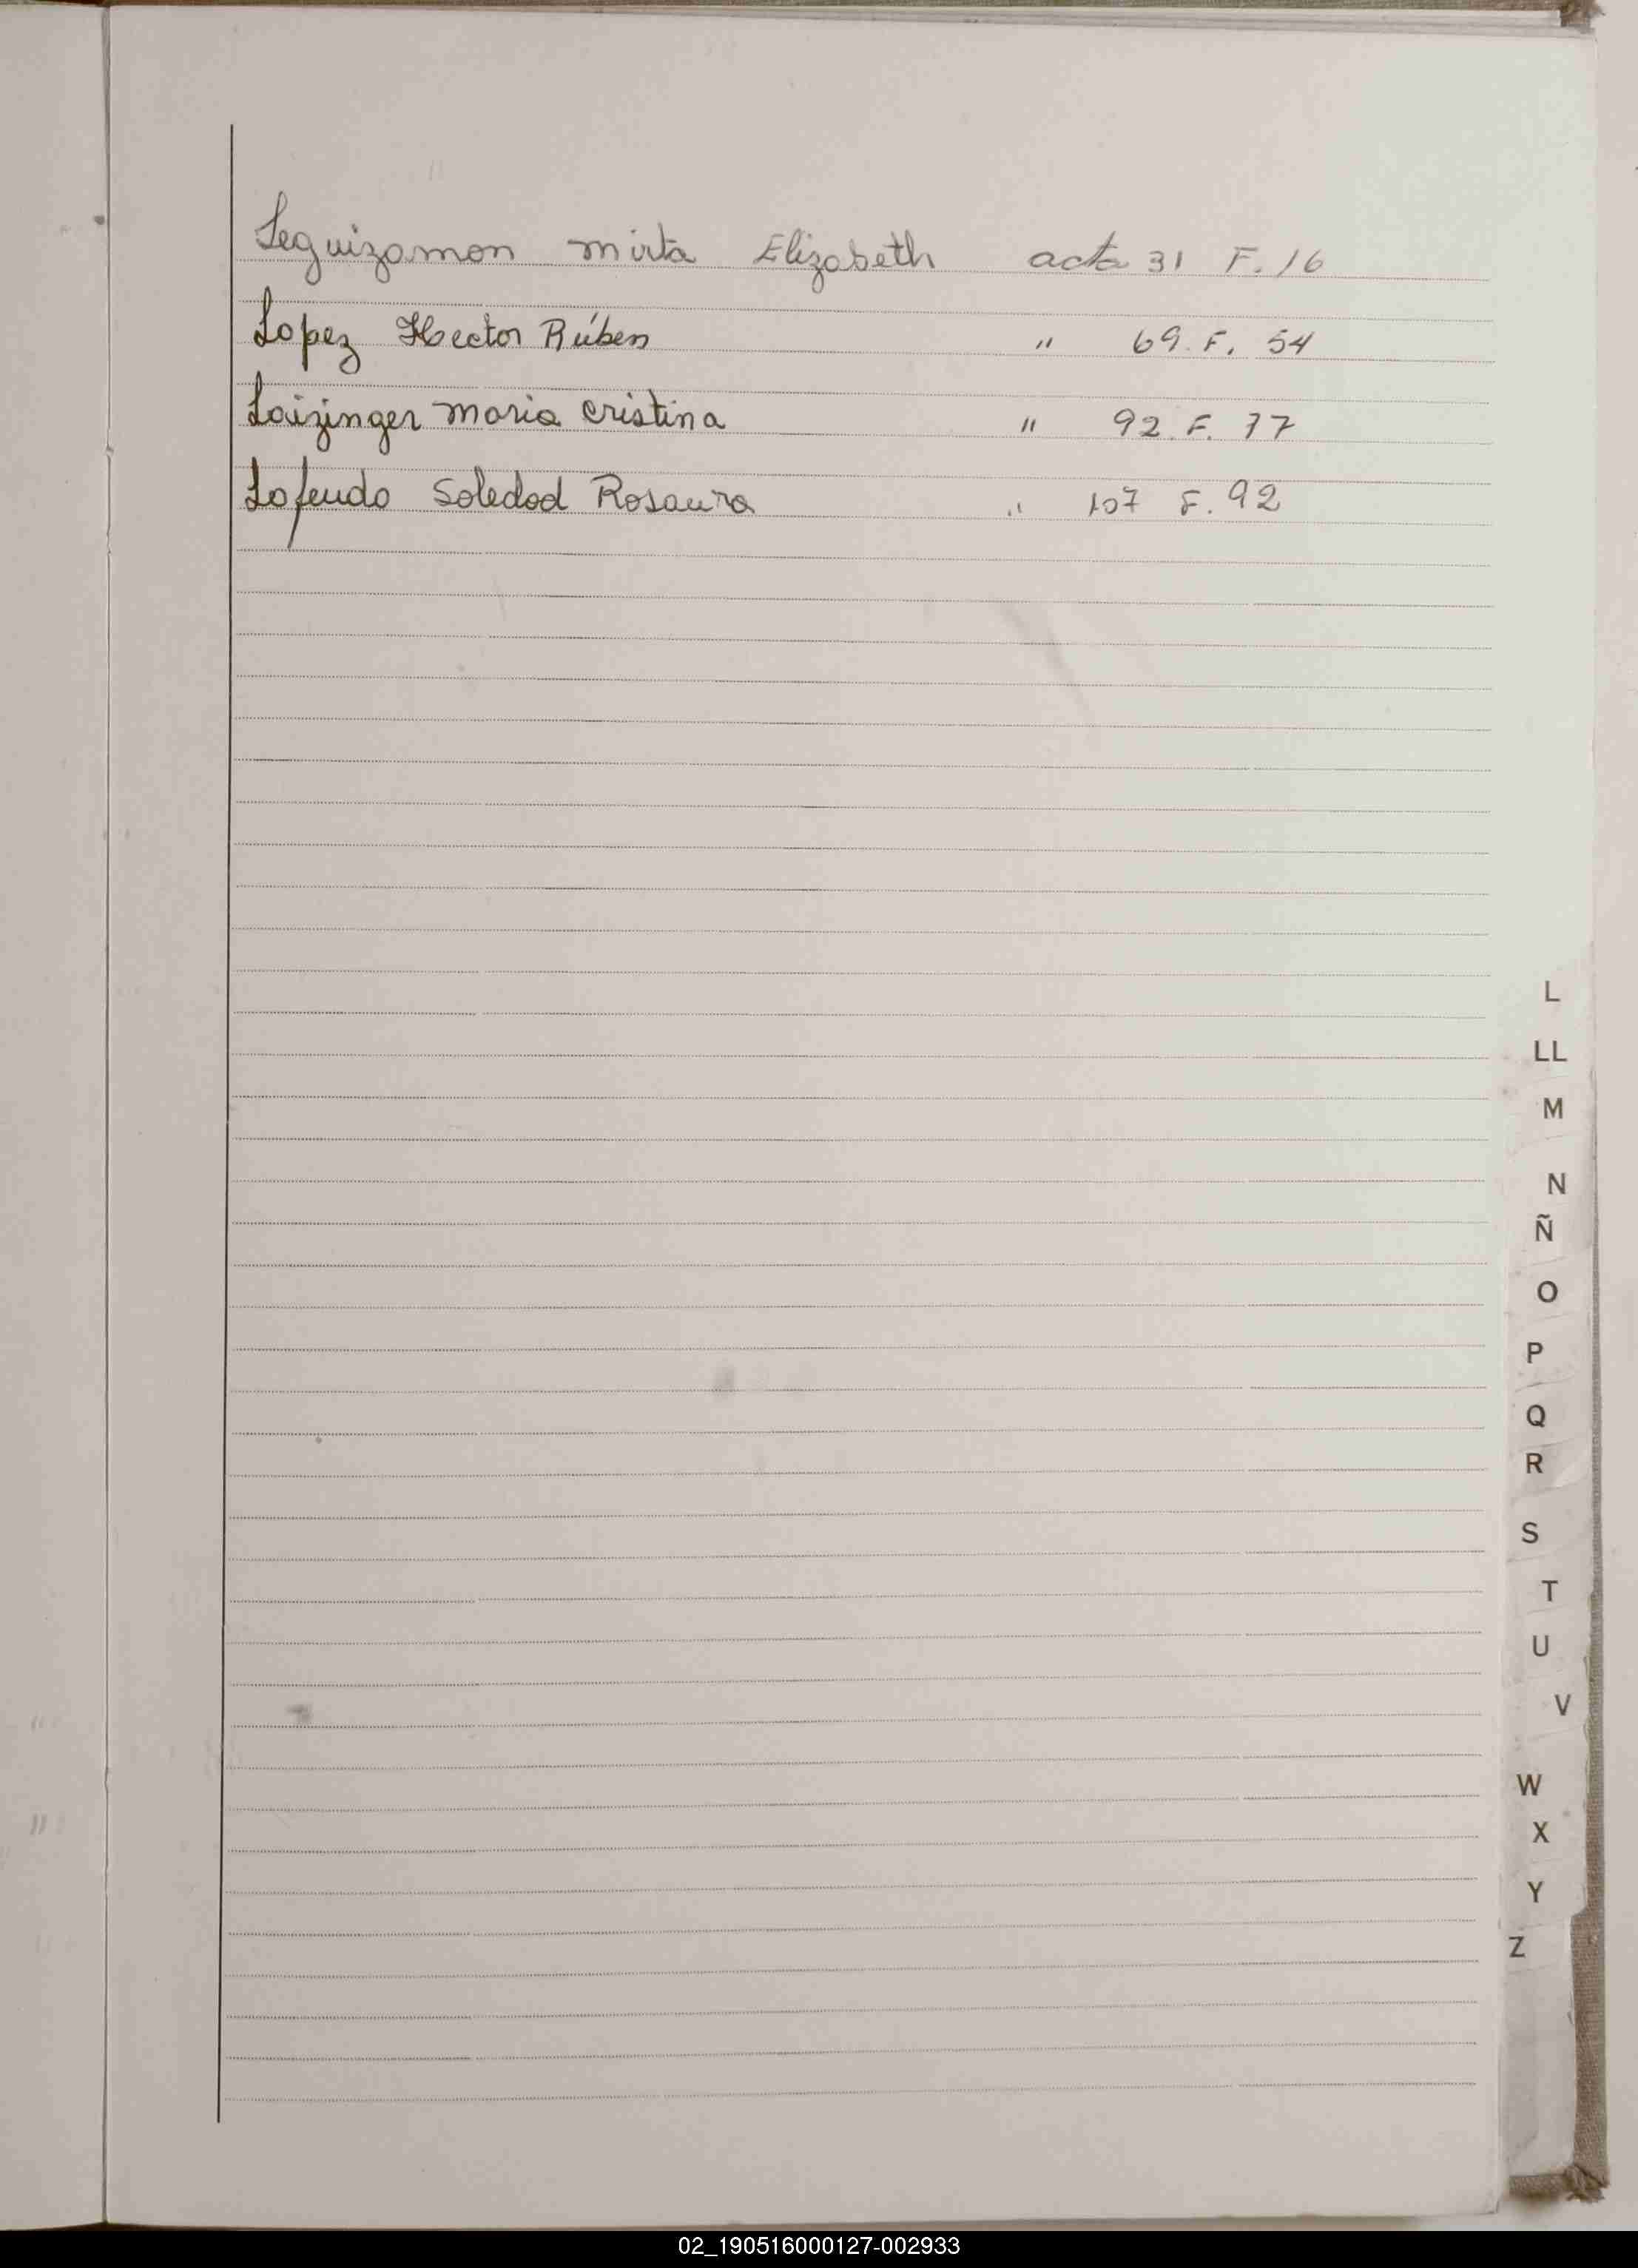 Leguizamon mirta Elizabeth acta 31 F. 16
Lopez Hector Rúben " 69. F. 54
Loizinger maria cristina " 92. F. 77
Lofeudo Soledad Rosaura " 107 F. 92
L
LL
M
N
Ñ
O
P
Q
R
S
T
U
V
W
X
Y
Z
02_190516000127-002933